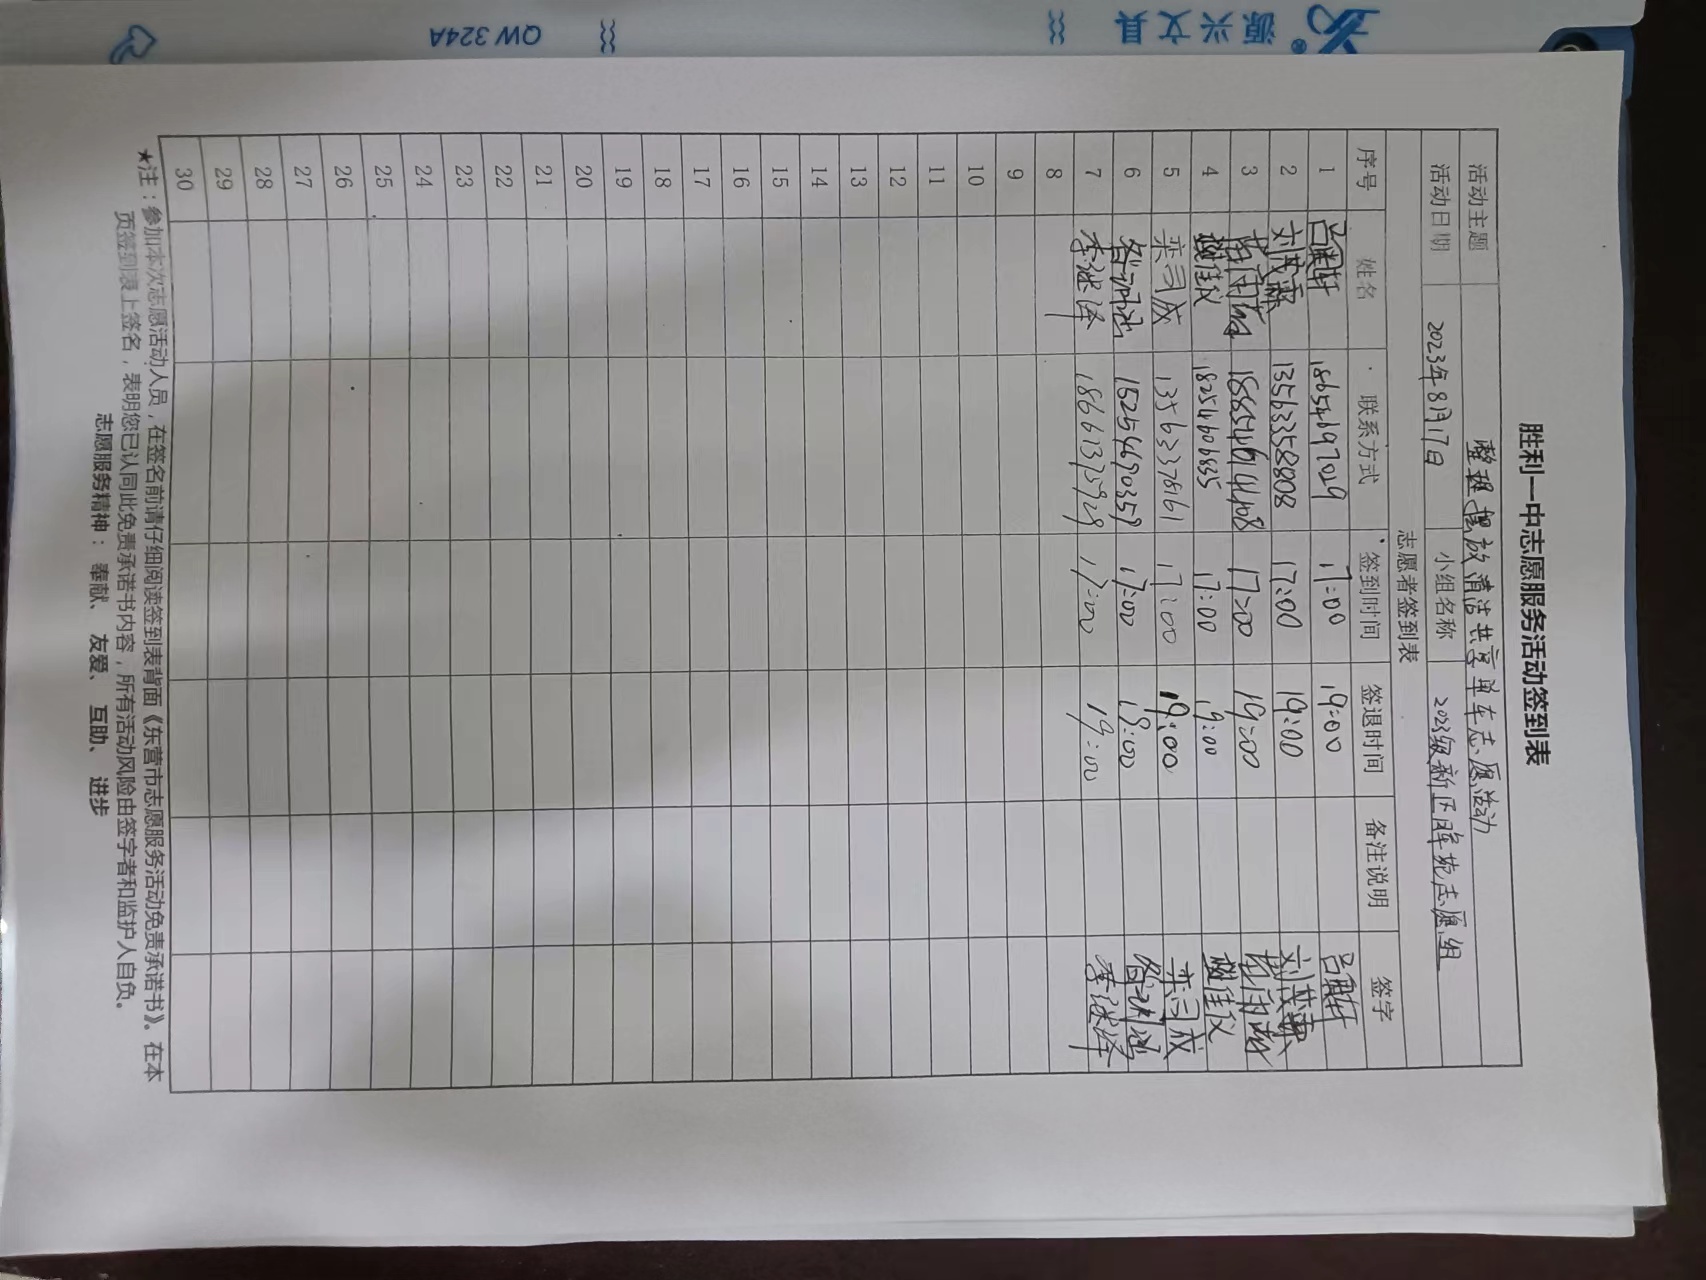 源兴文具
QW 324A
胜利一中志愿服务活动签到表
活动主题 整理摆放清洁共享单车志愿活动
活动日期 2023年8月17日 小组名称 2023级新区晖苑志愿组
志愿者签到表
序号 姓名 联系方式 签到时间 签退时间 备注说明 签字
1 吕 18654697029 17:00 19:00 吕
2 刘茂霖 13563358808 17:00 19:00 刘茂霖
3 17:00 19:00
4 佳仪 18254606835 17:00 19:00 佳仪
5 栾司成 13563378161 17:00 19:00 栾司成
6 15254690359 17:00 19:00
7 李继泽 18661373929 17:00 19:00 李继泽
8
9
10
11
12
13
14
15
16
17
18
19
20
21
22
23
24
25
26
27
28
29
30
★注：参加本次志愿活动人员，在签名前请仔细阅读签到表背面《东营市志愿服务活动免责承诺书》。在本
页签到表上签名，表明您已认同此免责承诺书内容，所有活动风险由签字者和监护人自负。
志愿服务精神：奉献、 友爱、 互助、 进步